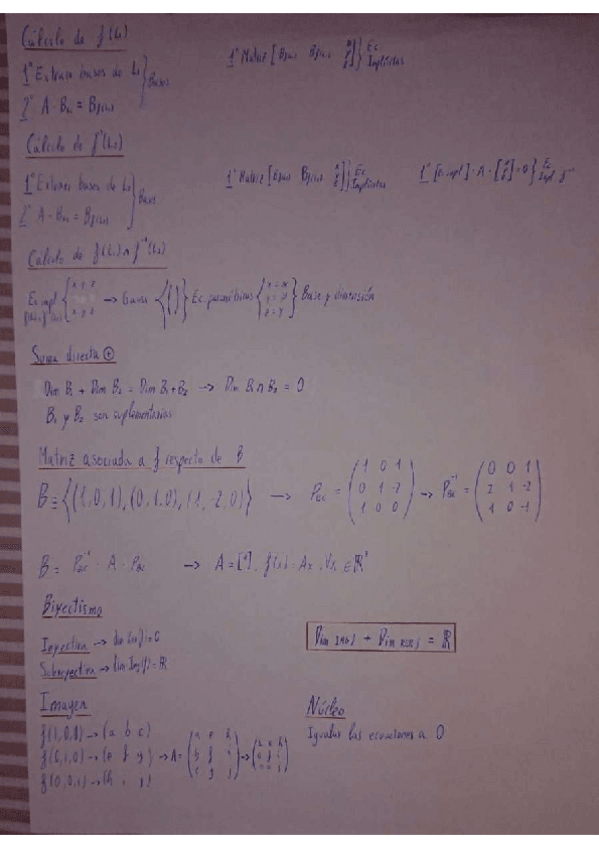 Cálculo de f(L₁)
1º Extraer bases de L₁ } Bases
2º A · B
1º Matriz [ ] } Ec. Implícitas
Cálculo de f⁻¹(L₂)
1º Extraer bases de L₂ } Base
2º A · B
1º Matriz [ ] } Ec. Implícitas
1º [Ec. impl] · A · [ ] = 0 } Ec. Impl. f⁻¹
Cálculo de f(L₁) ∩ f⁻¹(L₂)
Ec. impl { → Gauss → { } Ec. paramétricas { } Base y dimensión
Suma directa ⊕
Dim B₁ + Dim B₂ = Dim B₁+B₂ → Dim B₁ ∩ B₂ = 0
B₁ y B₂ son suplementarios
Matriz asociada a f respecto de B
B = {(1,0,1), (0,1,0), (1,-2,0)} → P_BC = (1 0 1 / 0 1 -2 / 1 0 0) → P_BC⁻¹ = (0 0 1 / 2 1 -2 / 1 0 -1)
B = P_BC⁻¹ · A · P_BC → A = [ ], f(x) = Ax, ∀x ∈ ℝ³
Biyectismo
Inyectiva → dim Ker(f) = 0
Sobreyectiva → dim Img(f) = ℝ
Dim IMG f + Dim KER f = ℝ
Imagen
f(1,0,0) → (a b c)
f(0,1,0) → (e f g) → A =
f(0,0,1) → (h i j)
Núcleo
Igualar las ecuaciones a 0